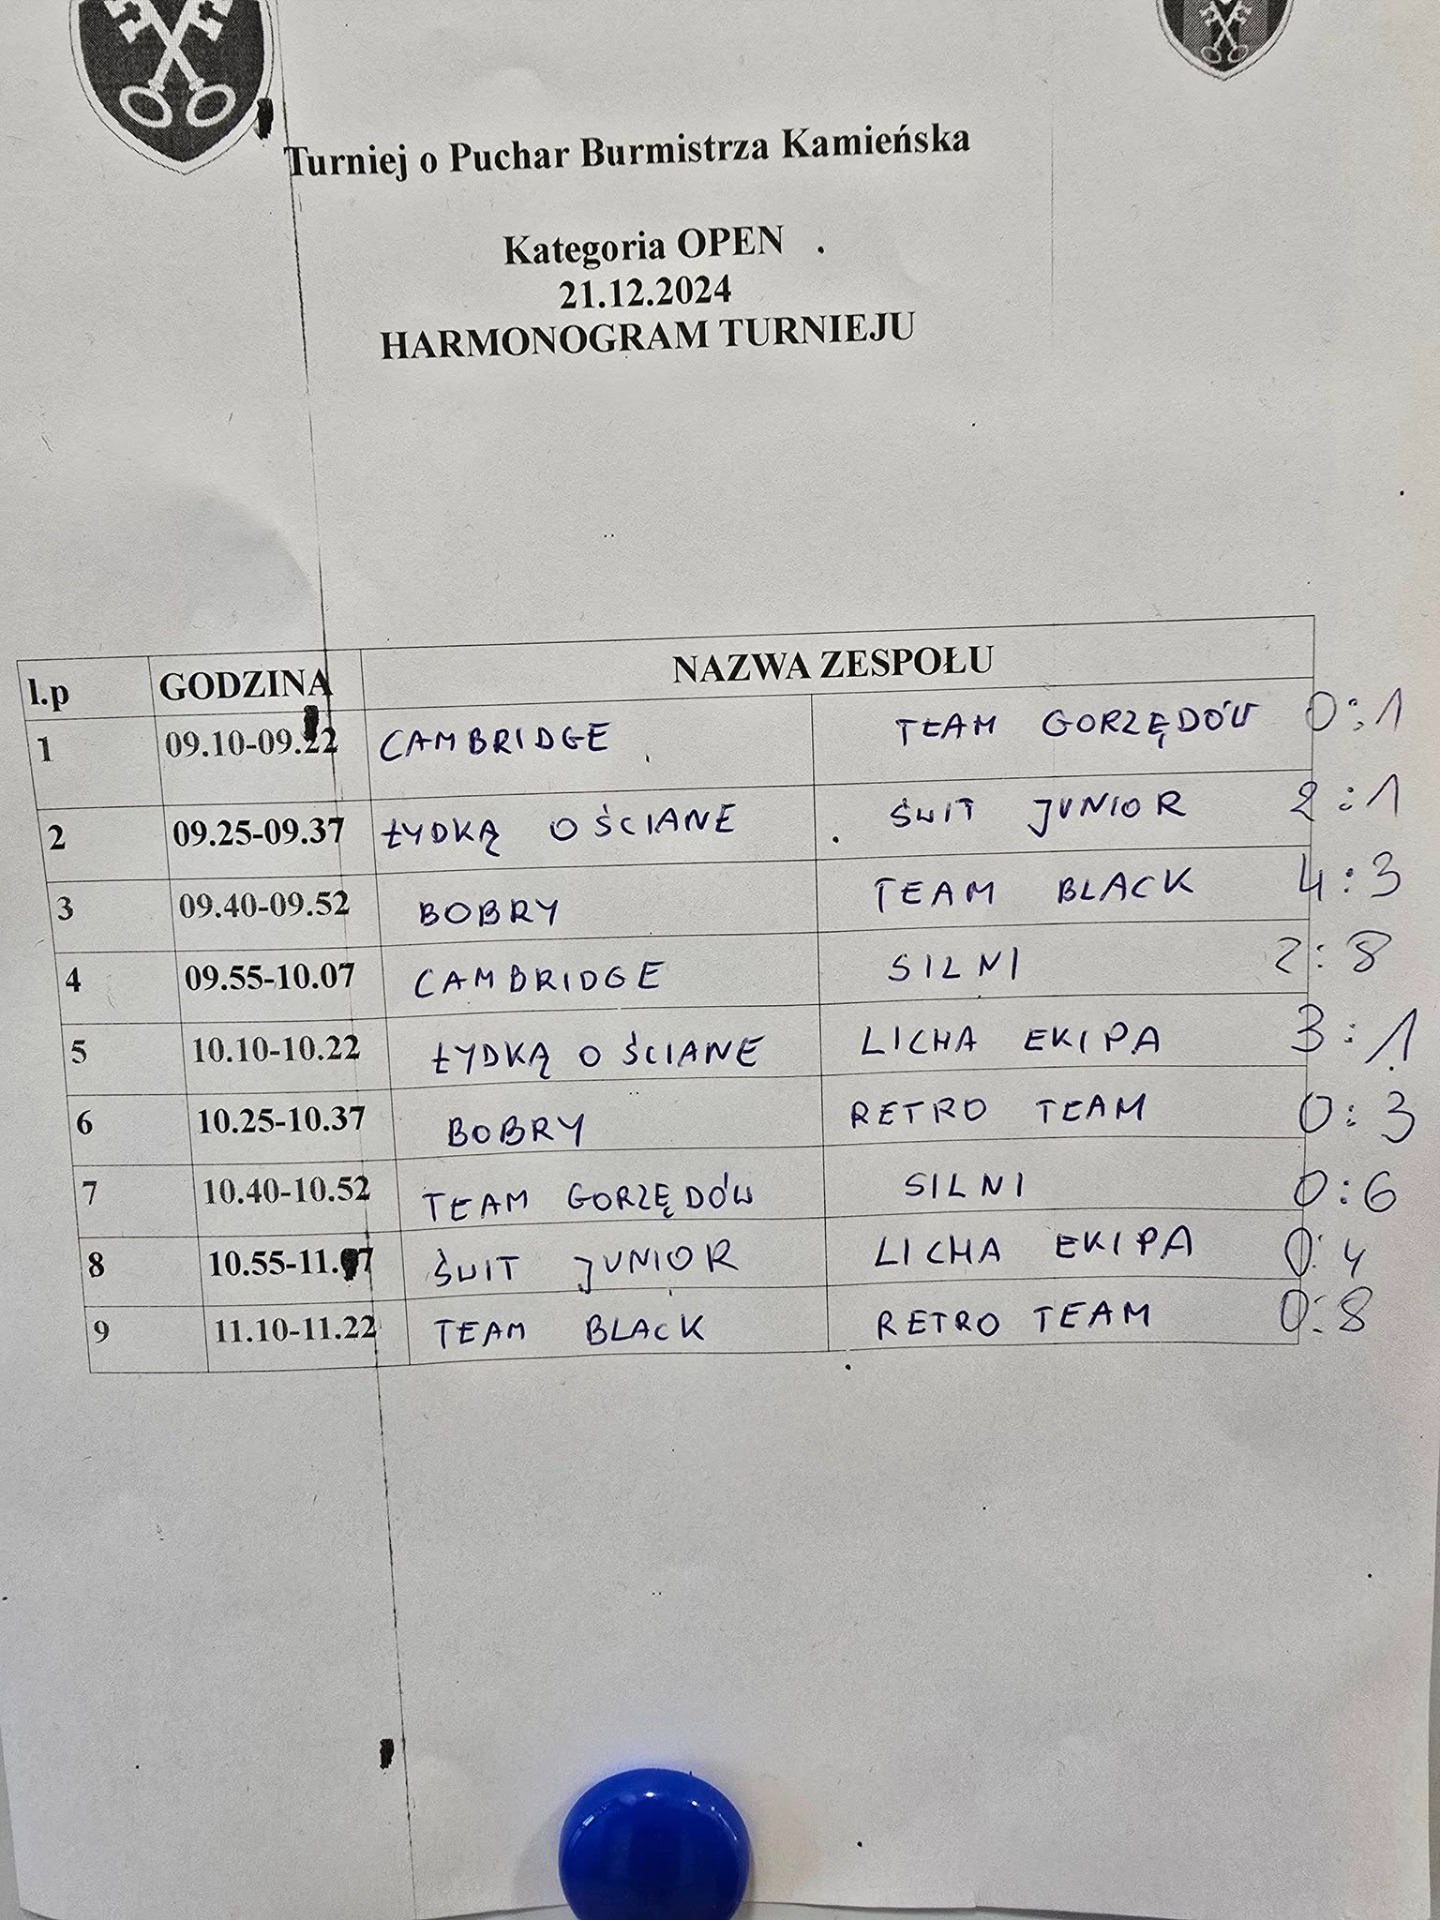 Turniej o Puchar Burmistrza Kamieńska
Kategoria OPEN
21.12.2024
HARMONOGRAM TURNIEJU
l.p GODZINA NAZWA ZESPOŁU
1 09.10-09.22 CAMBRIDGE TEAM GORZĘDÓW 0:1
2 09.25-09.37 ŁYDKĄ O ŚCIANE ŚWIT JUNIOR 2:1
3 09.40-09.52 BOBRY TEAM BLACK 4:3
4 09.55-10.07 CAMBRIDGE SILNI 2:8
5 10.10-10.22 ŁYDKĄ O ŚCIANE LICHA EKIPA 3:1
6 10.25-10.37 BOBRY RETRO TEAM 0:3
7 10.40-10.52 TEAM GORZĘDÓW SILNI 0:6
8 10.55-11.07 ŚWIT JUNIOR LICHA EKIPA 0:4
9 11.10-11.22 TEAM BLACK RETRO TEAM 0:8